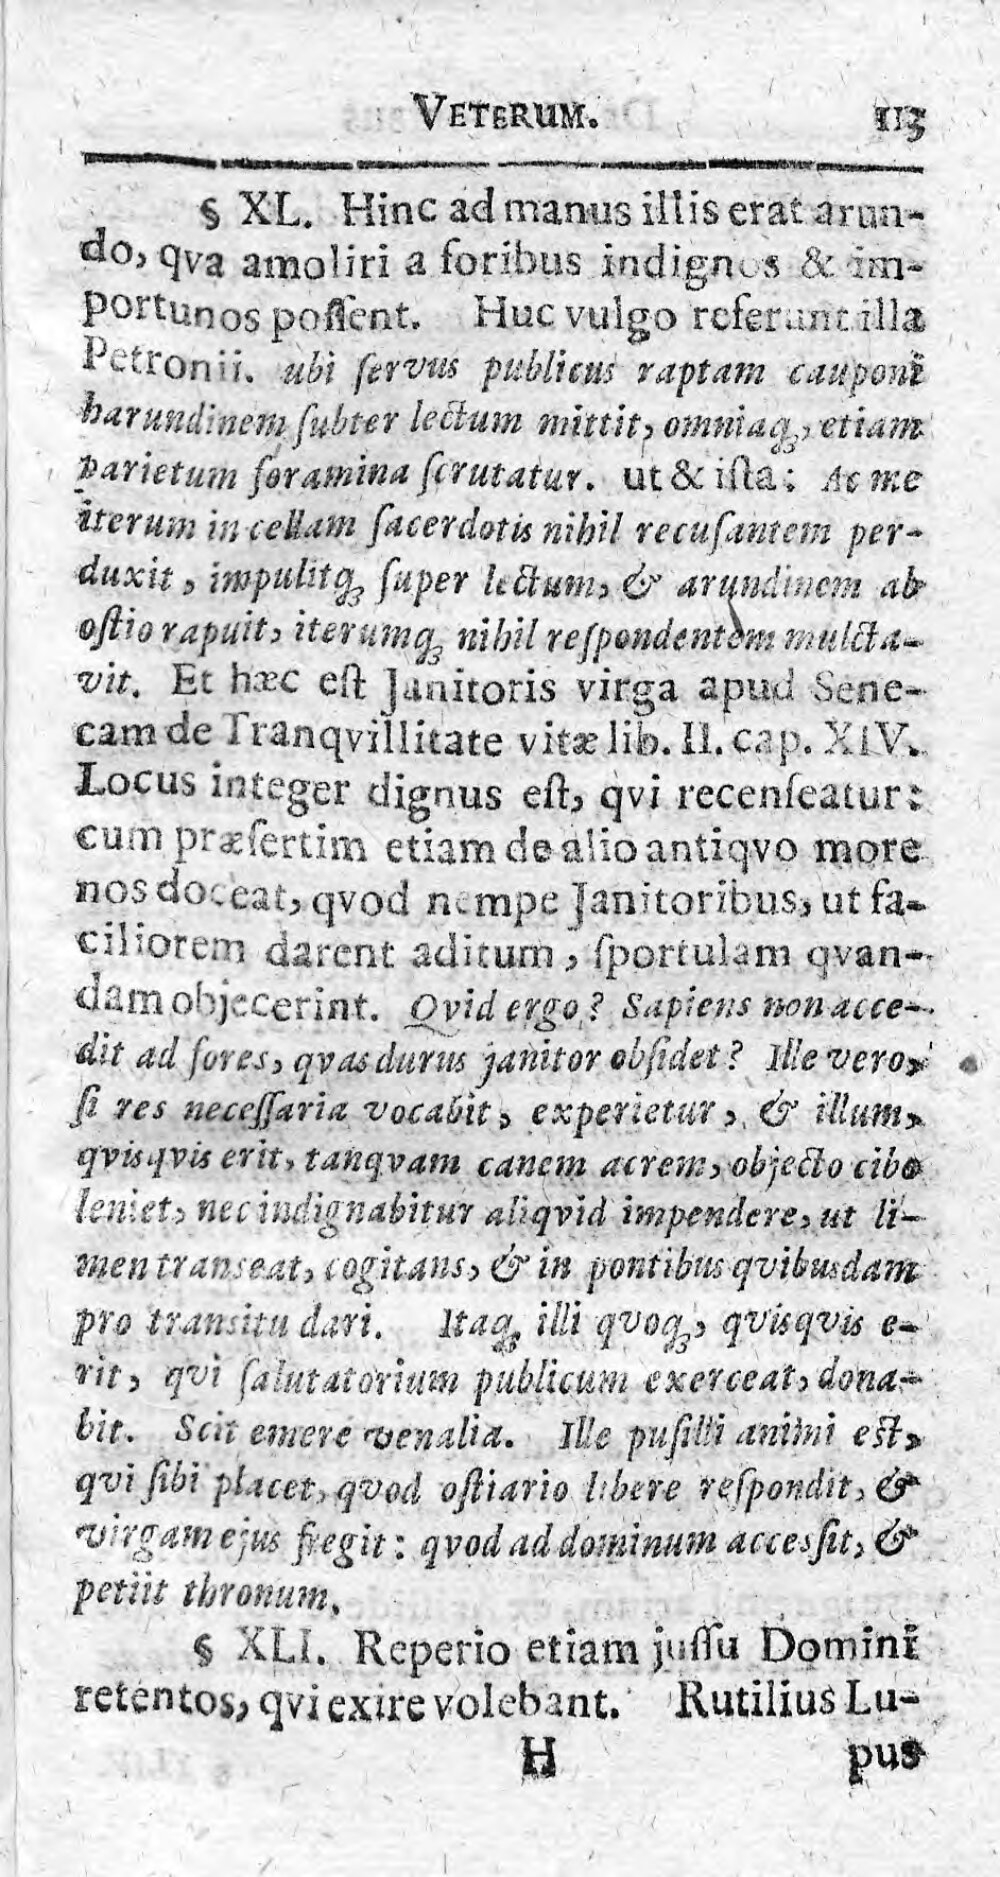 VETERUM. 113
§ XL. Hinc ad manus illis erat arun-
do, qva amoliri a foribus indignos & im-
portunos poſſent. Huc vulgo referunt illa
Petronii. ubi ſervus publicus raptam cauponi
harundinem ſubter lectum mittit, omniaq́;, etiam
parietum foramina ſcrutatur. ut & iſta: Ac me
iterum in cellam ſacerdotis nihil recuſantem per-
duxit, impulitq́; ſuper lectum, & arundinem ab
oſtio rapuit, iterumq́; nihil reſpondentem mulcta-
vit. Et hæc eſt Janitoris virga apud Sene-
cam de Tranqvillitate vitæ lib. II. cap. XIV.
Locus integer dignus eſt, qvi recenſeatur:
cum præſertim etiam de alio antiqvo more
nos doceat, qvod nempe Janitoribus, ut fa-
ciliorem darent aditum, ſportulam qvan-
dam objecerint. Qvid ergo? Sapiens non acce-
dit ad fores, qvas durus janitor obſidet? Ille vero,
ſi res neceſſaria vocabit, experietur, & illum,
qvisqvis erit, tanqvam canem acrem, objecto cibo
leniet, nec indignabitur aliqvid impendere, ut li-
men transeat, cogitans, & in pontibus qvibusdam
pro transitu dari. Itaq; illi qvoq́;, qvisqvis e-
rit, qvi ſalutatorium publicum exerceat, dona-
bit. Scit emere venalia. Ille puſilli animi eſt,
qvi ſibi placet, qvod oſtiario libere reſpondit, &
virgam ejus fregit: qvod ad dominum accesſit, &
petiit thronum.
§ XLI. Reperio etiam juſſu Domini
retentos, qvi exire volebant. Rutilius Lu-
H pus